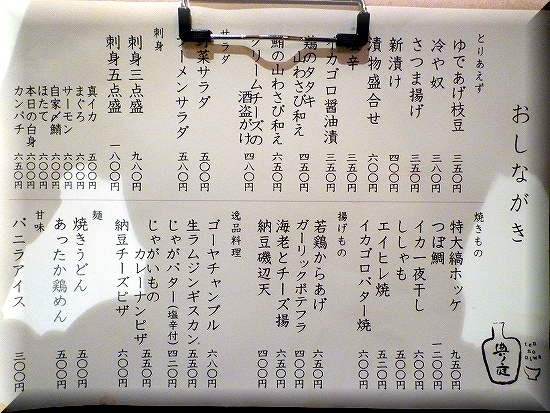 おしながき
とりあえず
ゆであげ枝豆 三五〇円
冷や奴 三八〇円
さつま揚げ 三五〇円
新漬け 四〇〇円
漬物盛合せ 六〇〇円
塩辛 三五〇円
イカゴロ醤油漬 三五〇円
鶏のタタキ
山わさび和え 四五〇円
鮪の山わさび和え 六五〇円
クリームチーズの
酒盗がけ 四八〇円
サラダ
野菜サラダ 五〇〇円
ラーメンサラダ 五八〇円
刺身
刺身三点盛 九八〇円
刺身五点盛 一八〇〇円
真イカ 五〇〇円
まぐろ 六〇〇円
サーモン 六〇〇円
自家〆鯖 六〇〇円
ほたて 六〇〇円
本日の白身 六〇〇円
カンパチ 六五〇円
焼きもの
特大縞ホッケ 九五〇円
つぼ鯛 一二〇〇円
イカ一夜干し 六〇〇円
ししゃも 五〇〇円
エイヒレ焼 五〇〇円
イカゴロバター焼 六〇〇円
揚げもの
若鶏からあげ 六五〇円
ガーリックポテフラ 四〇〇円
海老とチーズ揚 五五〇円
納豆磯辺天 四〇〇円
逸品料理
ゴーヤチャンプル 六八〇円
生ラムジンギスカン 五五〇円
じゃがバター(塩辛付) 四二〇円
じゃがいもの
カレーナンピザ 五五〇円
納豆チーズピザ 六〇〇円
麺
焼きうどん 五〇〇円
あったか鶏めん 五〇〇円
甘味
バニラアイス 三〇〇円